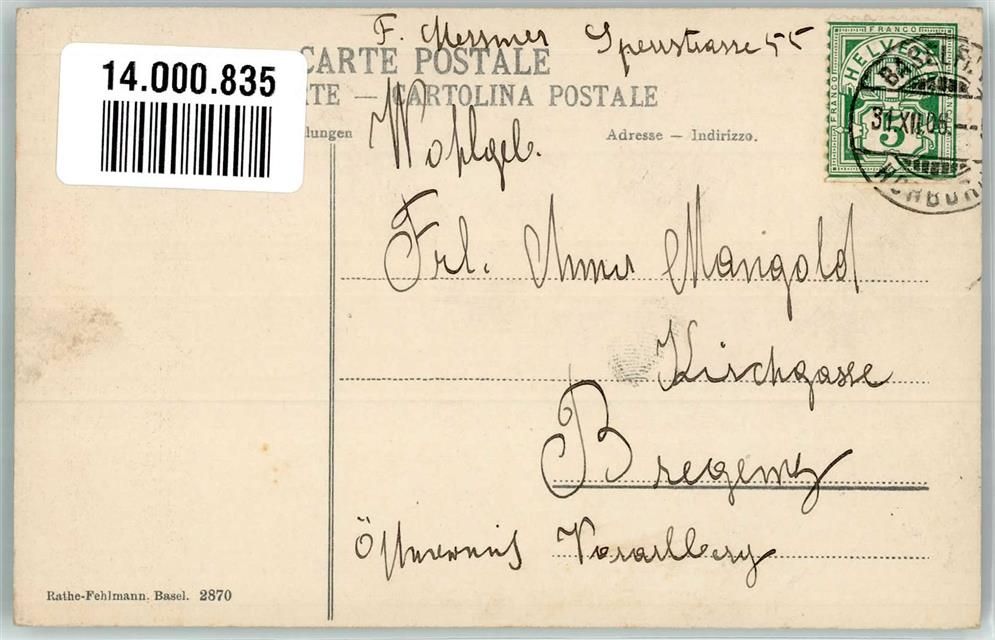 F. Messmer Sperrstrasse 55
14.000.835
CARTE POSTALE
RTE — CARTOLINA POSTALE
lungen
Adresse — Indirizzo.
FRANCO
HELVETIA
FRANCO
5
BASEL
31.XII.06.
HORBURG
Wohlgeb.
Frl. Anna Mangold
Kirchgasse
Bregenz
Österreich Vorarlberg
Rathe-Fehlmann. Basel. 2870